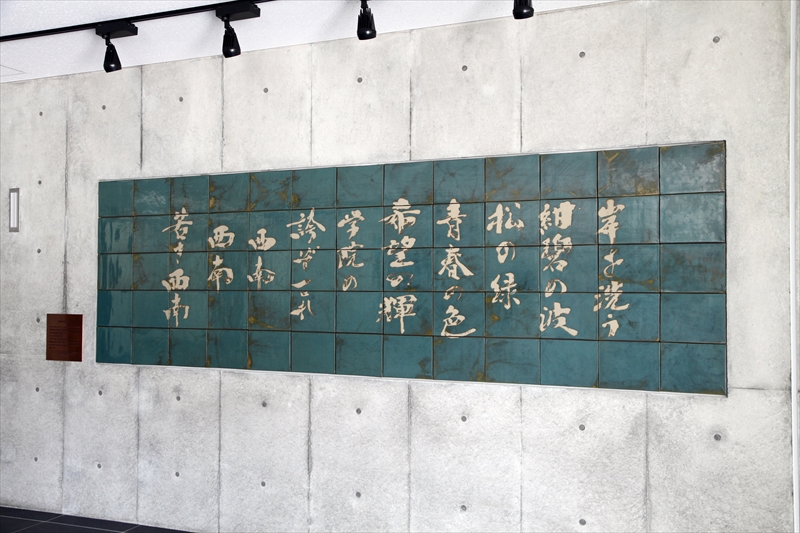 岸を洗う
紺碧の波
松の緑
青春の色
希望の輝
学院の
誇ぞこれ
西南
西南
若き西南